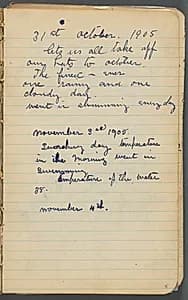 31st october. 1905
lets us all take off
our hats to october
The finest - ever
one rainy and one
cloudy day
went in swimming everyday
november 3rd 1905.
day temperature
in the morning went in
Swimming
temperature of the water
88.
november 4th.